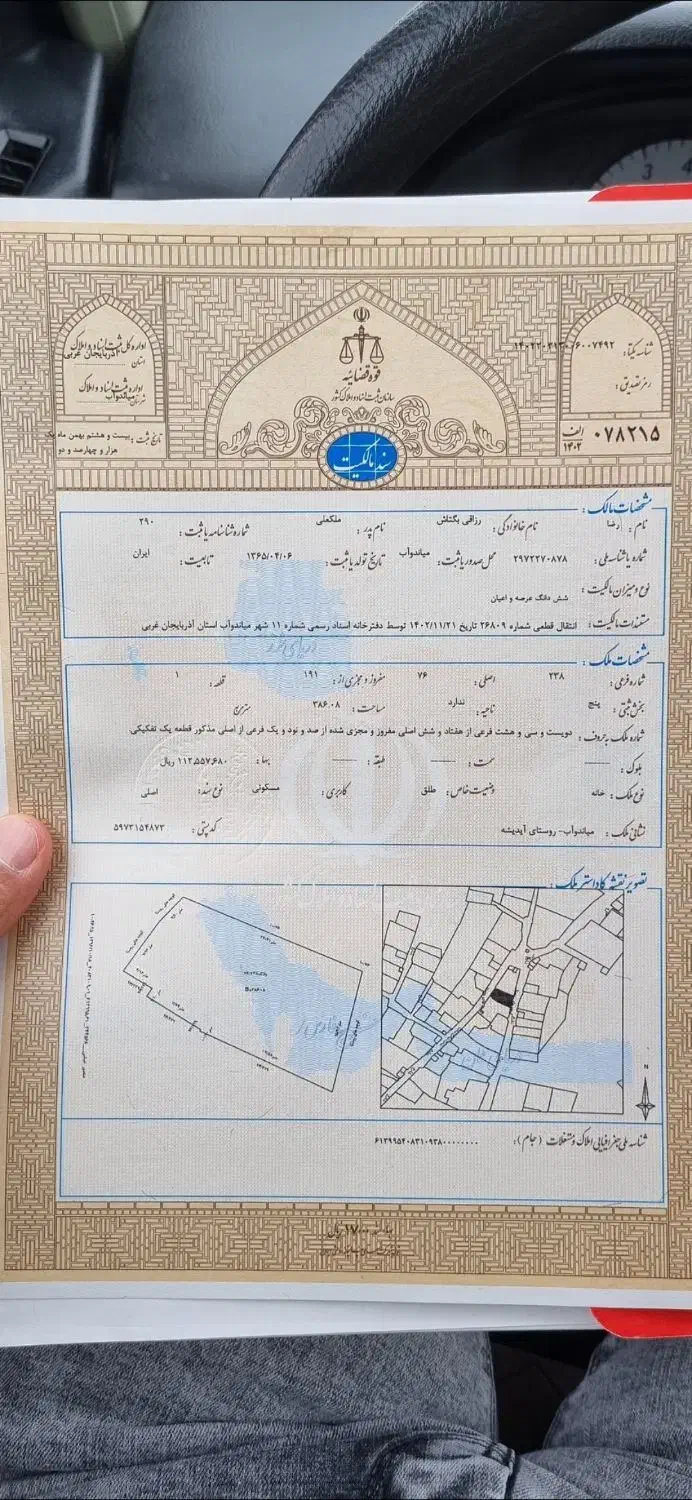 قوه قضائیه
سازمان ثبت اسناد و املاک کشور
سند مالکیت
شناسه یکتا: ۱۴۰۲۲۰۳۱۳۰۶۰۰۷۴۹۲
رمز تصدیق:
۰۷۸۲۱۵ الف ۱۴۰۲
اداره کل ثبت اسناد و املاک
استان آذربایجان غربی
اداره ثبت اسناد و املاک
شهرستان میاندوآب
تاریخ ثبت: بیست و هشتم بهمن ماه یک
هزار و چهارصد و دو
مشخصات مالک:
نام: رضا نام خانوادگی: رزاقی بگتاش نام پدر: ملکعلی شماره شناسنامه یا ثبت: ۲۹۰
شماره یا شناسه ملی: ۲۹۷۲۲۷۰۸۷۸ محل صدور یا ثبت: میاندوآب تاریخ تولد یا ثبت: ۱۳۶۵/۰۴/۰۶ تابعیت: ایران
نوع و میزان مالکیت: شش دانگ عرصه و اعیان
مستندات مالکیت: انتقال قطعی شماره ۲۶۸۰۹ تاریخ ۱۴۰۲/۱۱/۲۱ توسط دفترخانه اسناد رسمی شماره ۱۱ شهر میاندوآب استان آذربایجان غربی
مشخصات ملک:
شماره فرعی: ۲۳۸ اصلی: ۷۶ مفروز و مجزی از: ۱۹۱ قطعه: ۱
بخش ثبتی: پنج ناحیه: ندارد مساحت: ۳۸۶.۰۸ مترمربع
شماره ملک به حروف: دویست و سی و هشت فرعی از هفتاد و شش اصلی مفروز و مجزی شده از صد و نود و یک فرعی از اصلی مذکور قطعه یک تفکیکی
بلوک: —— سمت: —— طبقه: —— بها: ۱۱۲،۵۵۷،۶۸۰ ریال
نوع ملک: خانه وضعیت خاص: طلق کاربری: مسکونی نوع سند: اصلی
نشانی ملک: میاندوآب- روستای آیدیشه کد پستی: ۵۹۷۳۱۵۴۸۷۳
تصویر نقشه کاداستر ملک:
N
شناسه ملی جغرافیایی املاک و مستغلات (جام): ۶۱۳۹۹۵۴۰۸۳۱۰۹۳۸۰۰۰۰۰۰۰۰